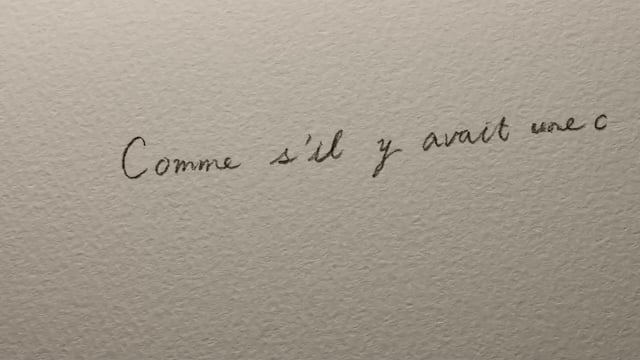 Comme s'il y avait une c